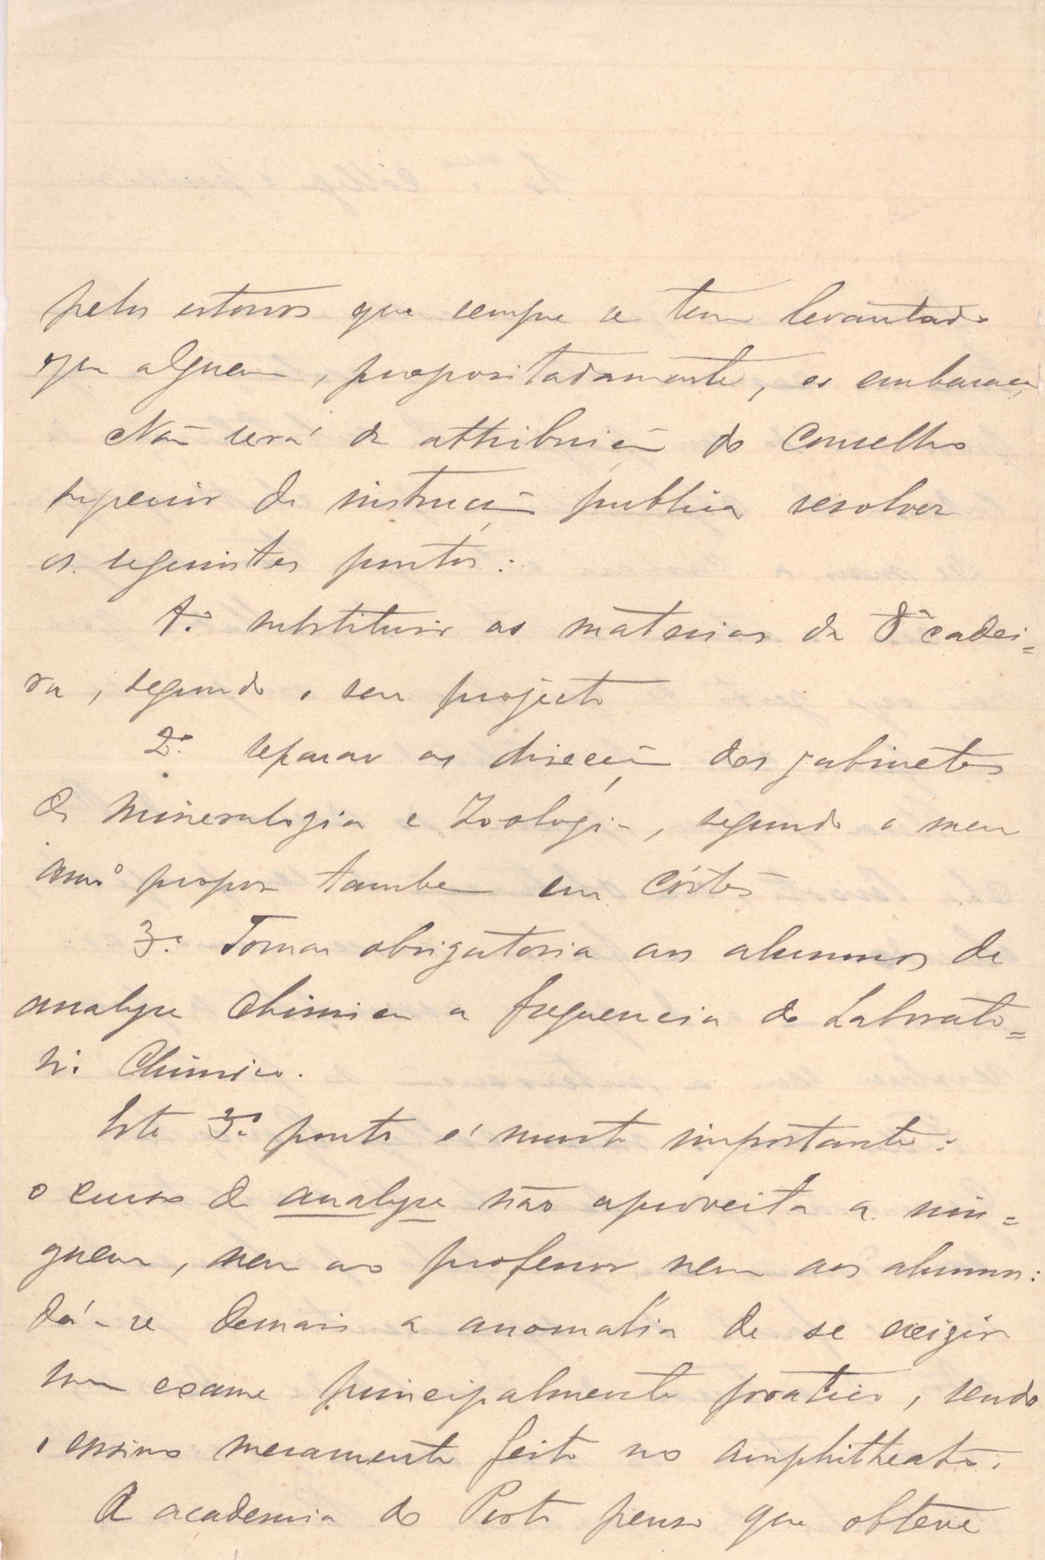 pelos estorvos que sempre se tem levantado
e que alguem, propositadamente, os embaraça
Não será da attribuição do Conselho
superior de instrucção publica resolver
os seguintes pontos:
1.º substituir as materias da 8ª cadei=
ra, segundo o seu projecto
2.º separar as direcção dos gabinetes
de Mineralogia e Zoologia, segundo o meu
amº propoz tambem em Côrtes
3.º Tornar obrigatoria aos alumnos de
analyse chimica a frequencia do Laborato=
rio Chimico.
Este 3.º ponto é muito importante:
o curso de analyse não aproveita a nin=
guem, nem ao professor nem aos alumnos:
dá-se demais a anomalia de se exigir
um exame principalmente pratico, sendo
o ensino meramente feito no amphitheatro.
A academia do Porto penso que obteve